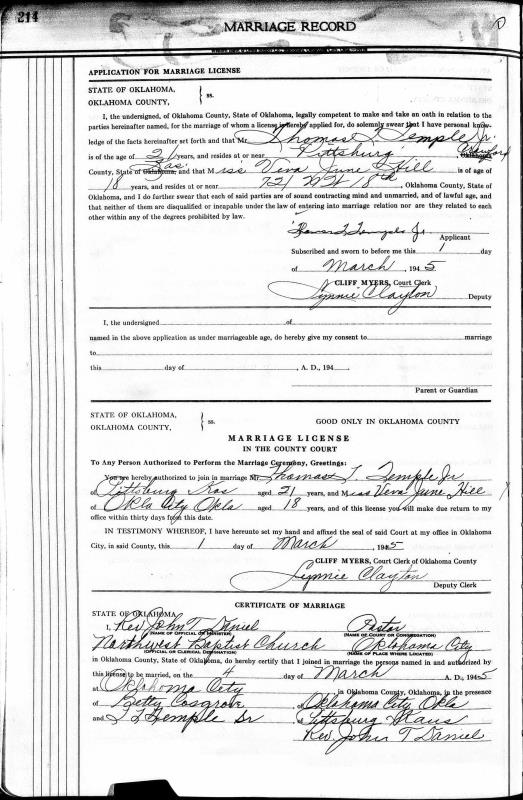 214
MARRIAGE RECORD
APPLICATION FOR MARRIAGE LICENSE
STATE OF OKLAHOMA,
OKLAHOMA COUNTY, } ss.
I, the undersigned, of Oklahoma County, State of Oklahoma, legally competent to make and take an oath in relation to the
parties hereinafter named, for the marriage of whom a license is hereby applied for, do solemnly swear that I have personal know-
ledge of the facts hereinafter set forth and that Mr. Thomas T. Temple Jr.
is of the age of 21 years, and resides at or near Pittsburg Crawford Oklahoma
County, State of Oklahoma, Kas. and that Miss Vera June Hill is of age of
18 years, and resides at or near 721 NW 18th, Oklahoma County, State of
Oklahoma, and I do further swear that each of said parties are of sound contracting mind and unmarried, and of lawful age, and
that neither of them are disqualified or incapable under the law of entering into marriage relation nor are they related to each
other within any of the degrees prohibited by law.
Thomas T. Temple Jr.
Applicant
Subscribed and sworn to before me this 1 day
of March, 1945
CLIFF MYERS, Court Clerk
Lynnie Clayton Deputy
I, the undersigned of
named in the above application as under marriageable age, do hereby give my consent to marriage
to
this day of , A. D., 194
Parent or Guardian
STATE OF OKLAHOMA,
OKLAHOMA COUNTY, } ss. GOOD ONLY IN OKLAHOMA COUNTY
MARRIAGE LICENSE
IN THE COUNTY COURT
To Any Person Authorized to Perform the Marriage Ceremony, Greetings:
You are hereby authorized to join in marriage Mr. Thomas T. Temple Jr
of Pittsburg Kas aged 21 years, and Miss Vera June Hill
of Okla City Okla aged 18 years, and of this license you will make due return to my
office within thirty days from this date.
IN TESTIMONY WHEREOF, I have hereunto set my hand and affixed the seal of said Court at my office in Oklahoma
City, in said County, this 1 day of March 1945
CLIFF MYERS, Court Clerk of Oklahoma County
Lynnie Clayton
Deputy Clerk
CERTIFICATE OF MARRIAGE
STATE OF OKLAHOMA
I, Rev John T Daniel Pastor
(NAME OF OFFICIAL OR MINISTER) (NAME OF COURT OR CONGREGATION)
Northwest Baptist Church Oklahoma City
(OFFICIAL OR CLERICAL DESIGNATION) (NAME OF PLACE WHERE LOCATED)
in Oklahoma County, State of Oklahoma, do hereby certify that I joined in marriage the persons named in and authorized by
this license to be married, on the 4 day of March A. D., 1945
at Oklahoma City in Oklahoma County, Oklahoma, in the presence
of Betty Cosgrove of Oklahoma City, Okla
and T T Temple Sr of Pittsburg Kans
Rev. John T Daniel